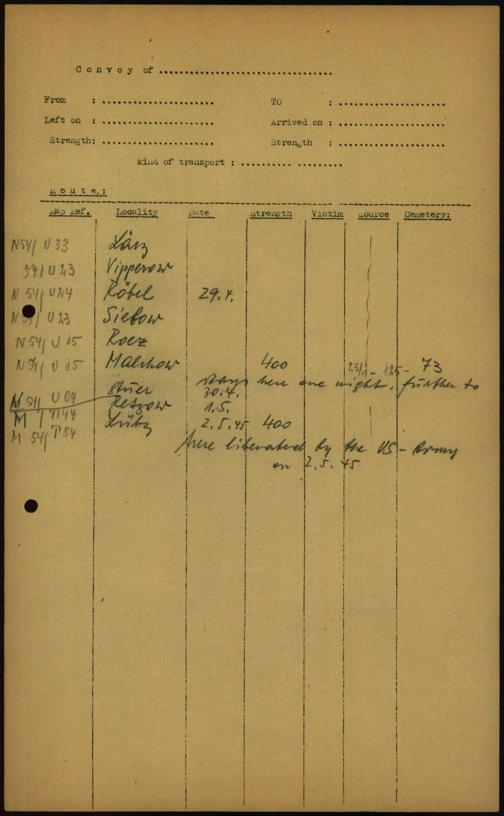 Convoy of ..............................
From : .................... TO : ....................
Left on : .................... Arrived on : ....................
Strength: .................... Strength : ....................
kind of transport : .......... ........
Route:
Map Ref. Locality Date Strength Victim Source Cemetery:
N54/ U 33 Lärz
54/ U 23 Vipperow
N 54/ U24 Röbel 29.4.
N 54/ U 23 Sietow
N 54/ U 15 Roez
N 54/ U 15 Malchow 400 73
stays here one night, further to
Stuer 30.4.
N 54/ U 04 Retzow 1.5.
M / T 44 Lübz 2.5.45 400
M 54/ T 54
here liberated by the US-Army
on 2.5.45